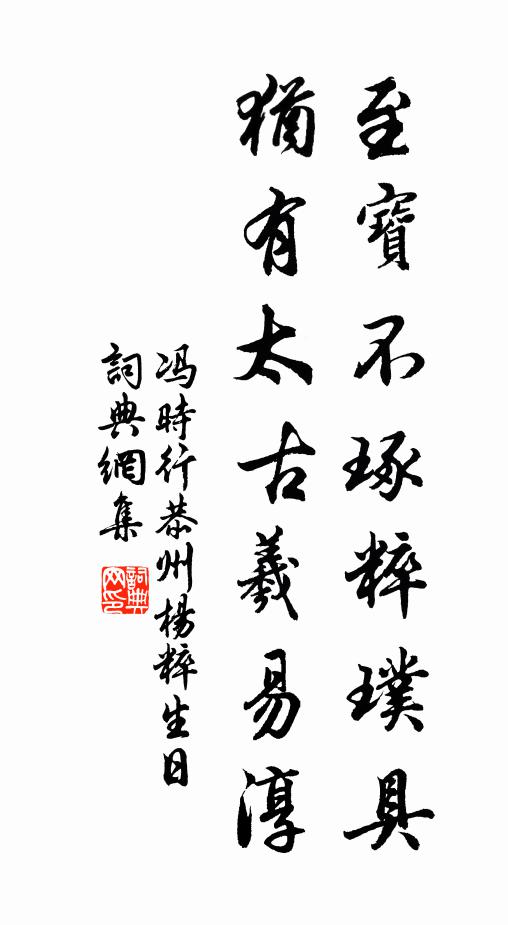 至寶不琢粹璞具
猶有太古羲易淳
冯時行恭州楊粹生日
詞典網集
詞典网印